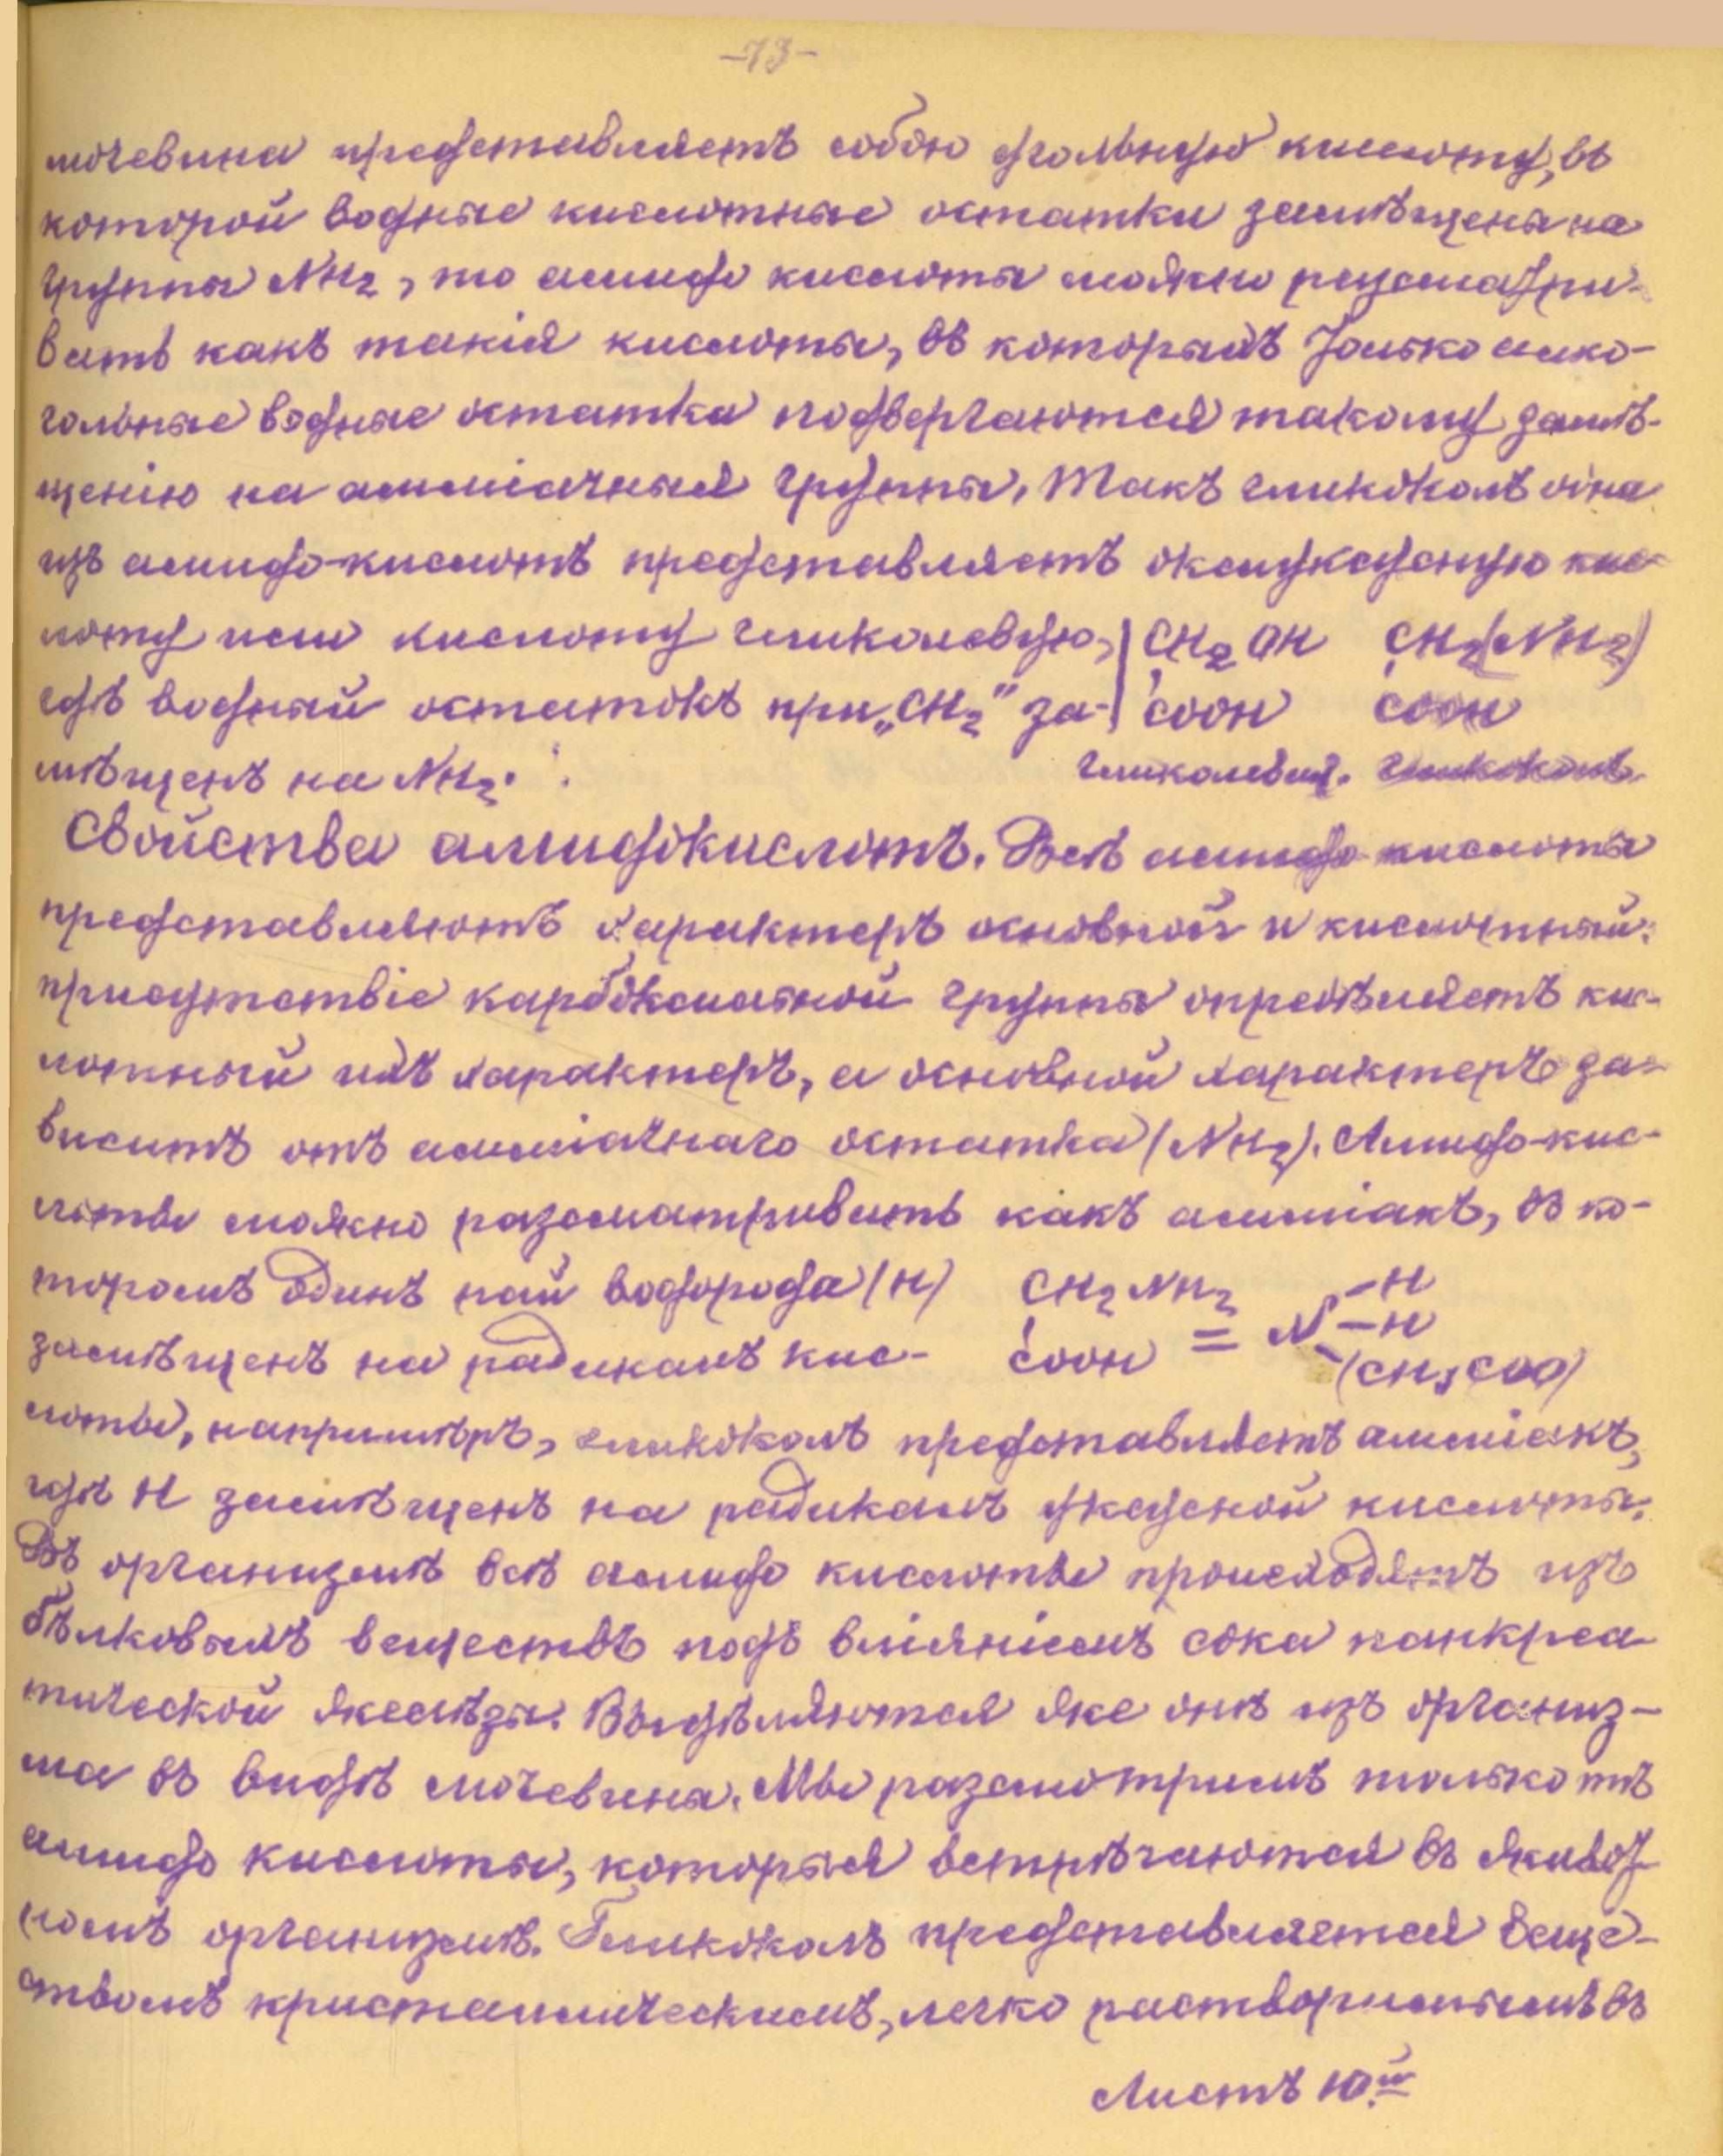 -73-
мочевина представляетъ собою угольную кислоту, въ
которой водные кислотные остатки замѣщены на
группы NH₂, то амидо кислоты можно разсматри-
вать какъ такія кислоты, въ которыхъ только алко-
гольные водные остатки подвергаются такому замѣ-
щенію на амміачныя группы. Такъ гликоколъ одна
изъ амидо-кислотъ представляетъ оксиуксусную кис-
лоту или кислоту гликолевую, | CH₂OH CH₂(NH₂)
гдѣ водный остатокъ при „CH₂" за- | COOH COOH
мѣщенъ на NH₂. гликолевая. гликоколъ.
Свойства амидокислотъ. Всѣ амидо-кислоты
представляютъ характеръ основной и кислотный:
присутствіе карбоксильной группы опредѣляетъ кис-
лотный ихъ характеръ, а основной характеръ за-
виситъ отъ амміачнаго остатка (NH₂). Амидо-кис-
лоты можно разсматривать какъ амміакъ, въ ко-
торомъ одинъ пай водорода (H) CH₂NH₂ -H
замѣщенъ на радикалъ кис- COOH = N-H
-(CH₃COO)
лоты, напримѣръ, гликоколъ представляетъ амміакъ,
гдѣ H замѣщенъ на радикалъ уксусной кислоты.
Въ организмѣ всѣ амидо кислоты происходятъ изъ
бѣлковыхъ веществъ подъ вліяніемъ сока панкреа-
тической железы. Выдѣляются же онѣ изъ организ-
ма въ видѣ мочевины. Мы разсмотримъ только тѣ
амидо кислоты, которыя встрѣчаются въ живот-
номъ организмѣ. Гликоколъ представляется веще-
ствомъ кристаллическимъ, легко растворимымъ въ
Листъ 10.й